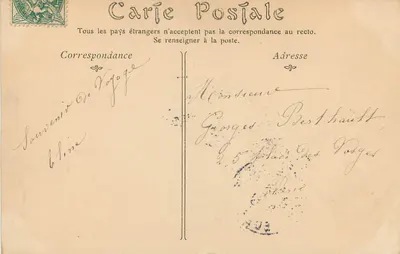 Carte Postale
Tous les pays étrangers n'acceptent pas la correspondance au recto.
Se renseigner à la poste.
Correspondance
Adresse
Souvenir de Voyage
Monsieur
Georges Berthault
5 place des Vosges